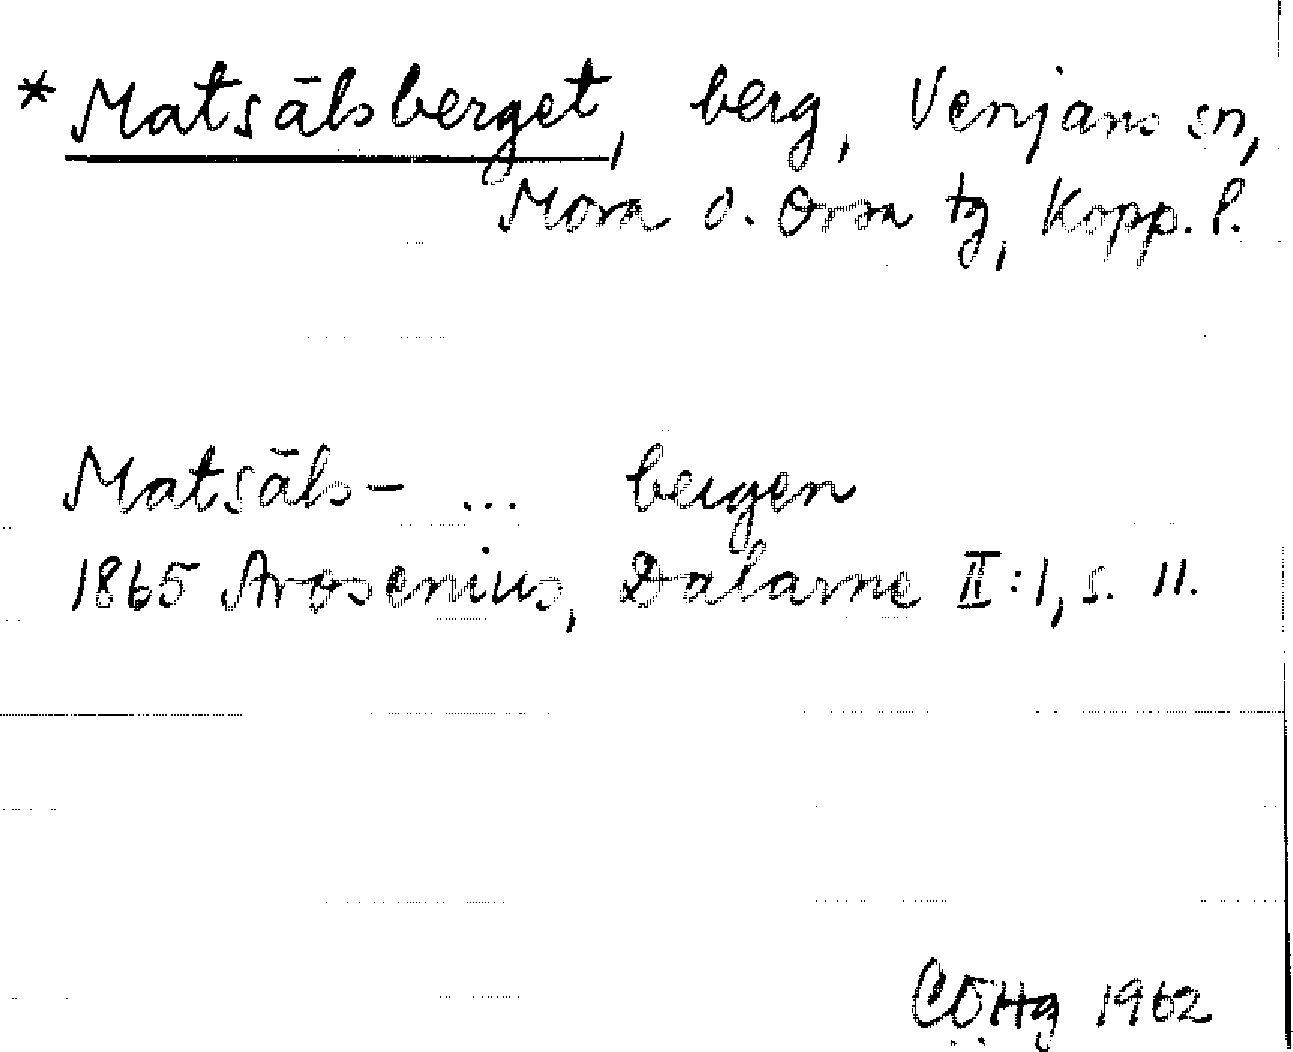 * Matsälsberget, berg, Venjans sn,
Mora o. Orsa tg, Kopp. l.
Matsäls- ... bergen
1865 Arosenius, Dalarne II:1, s. 11.
CÖHg 1962